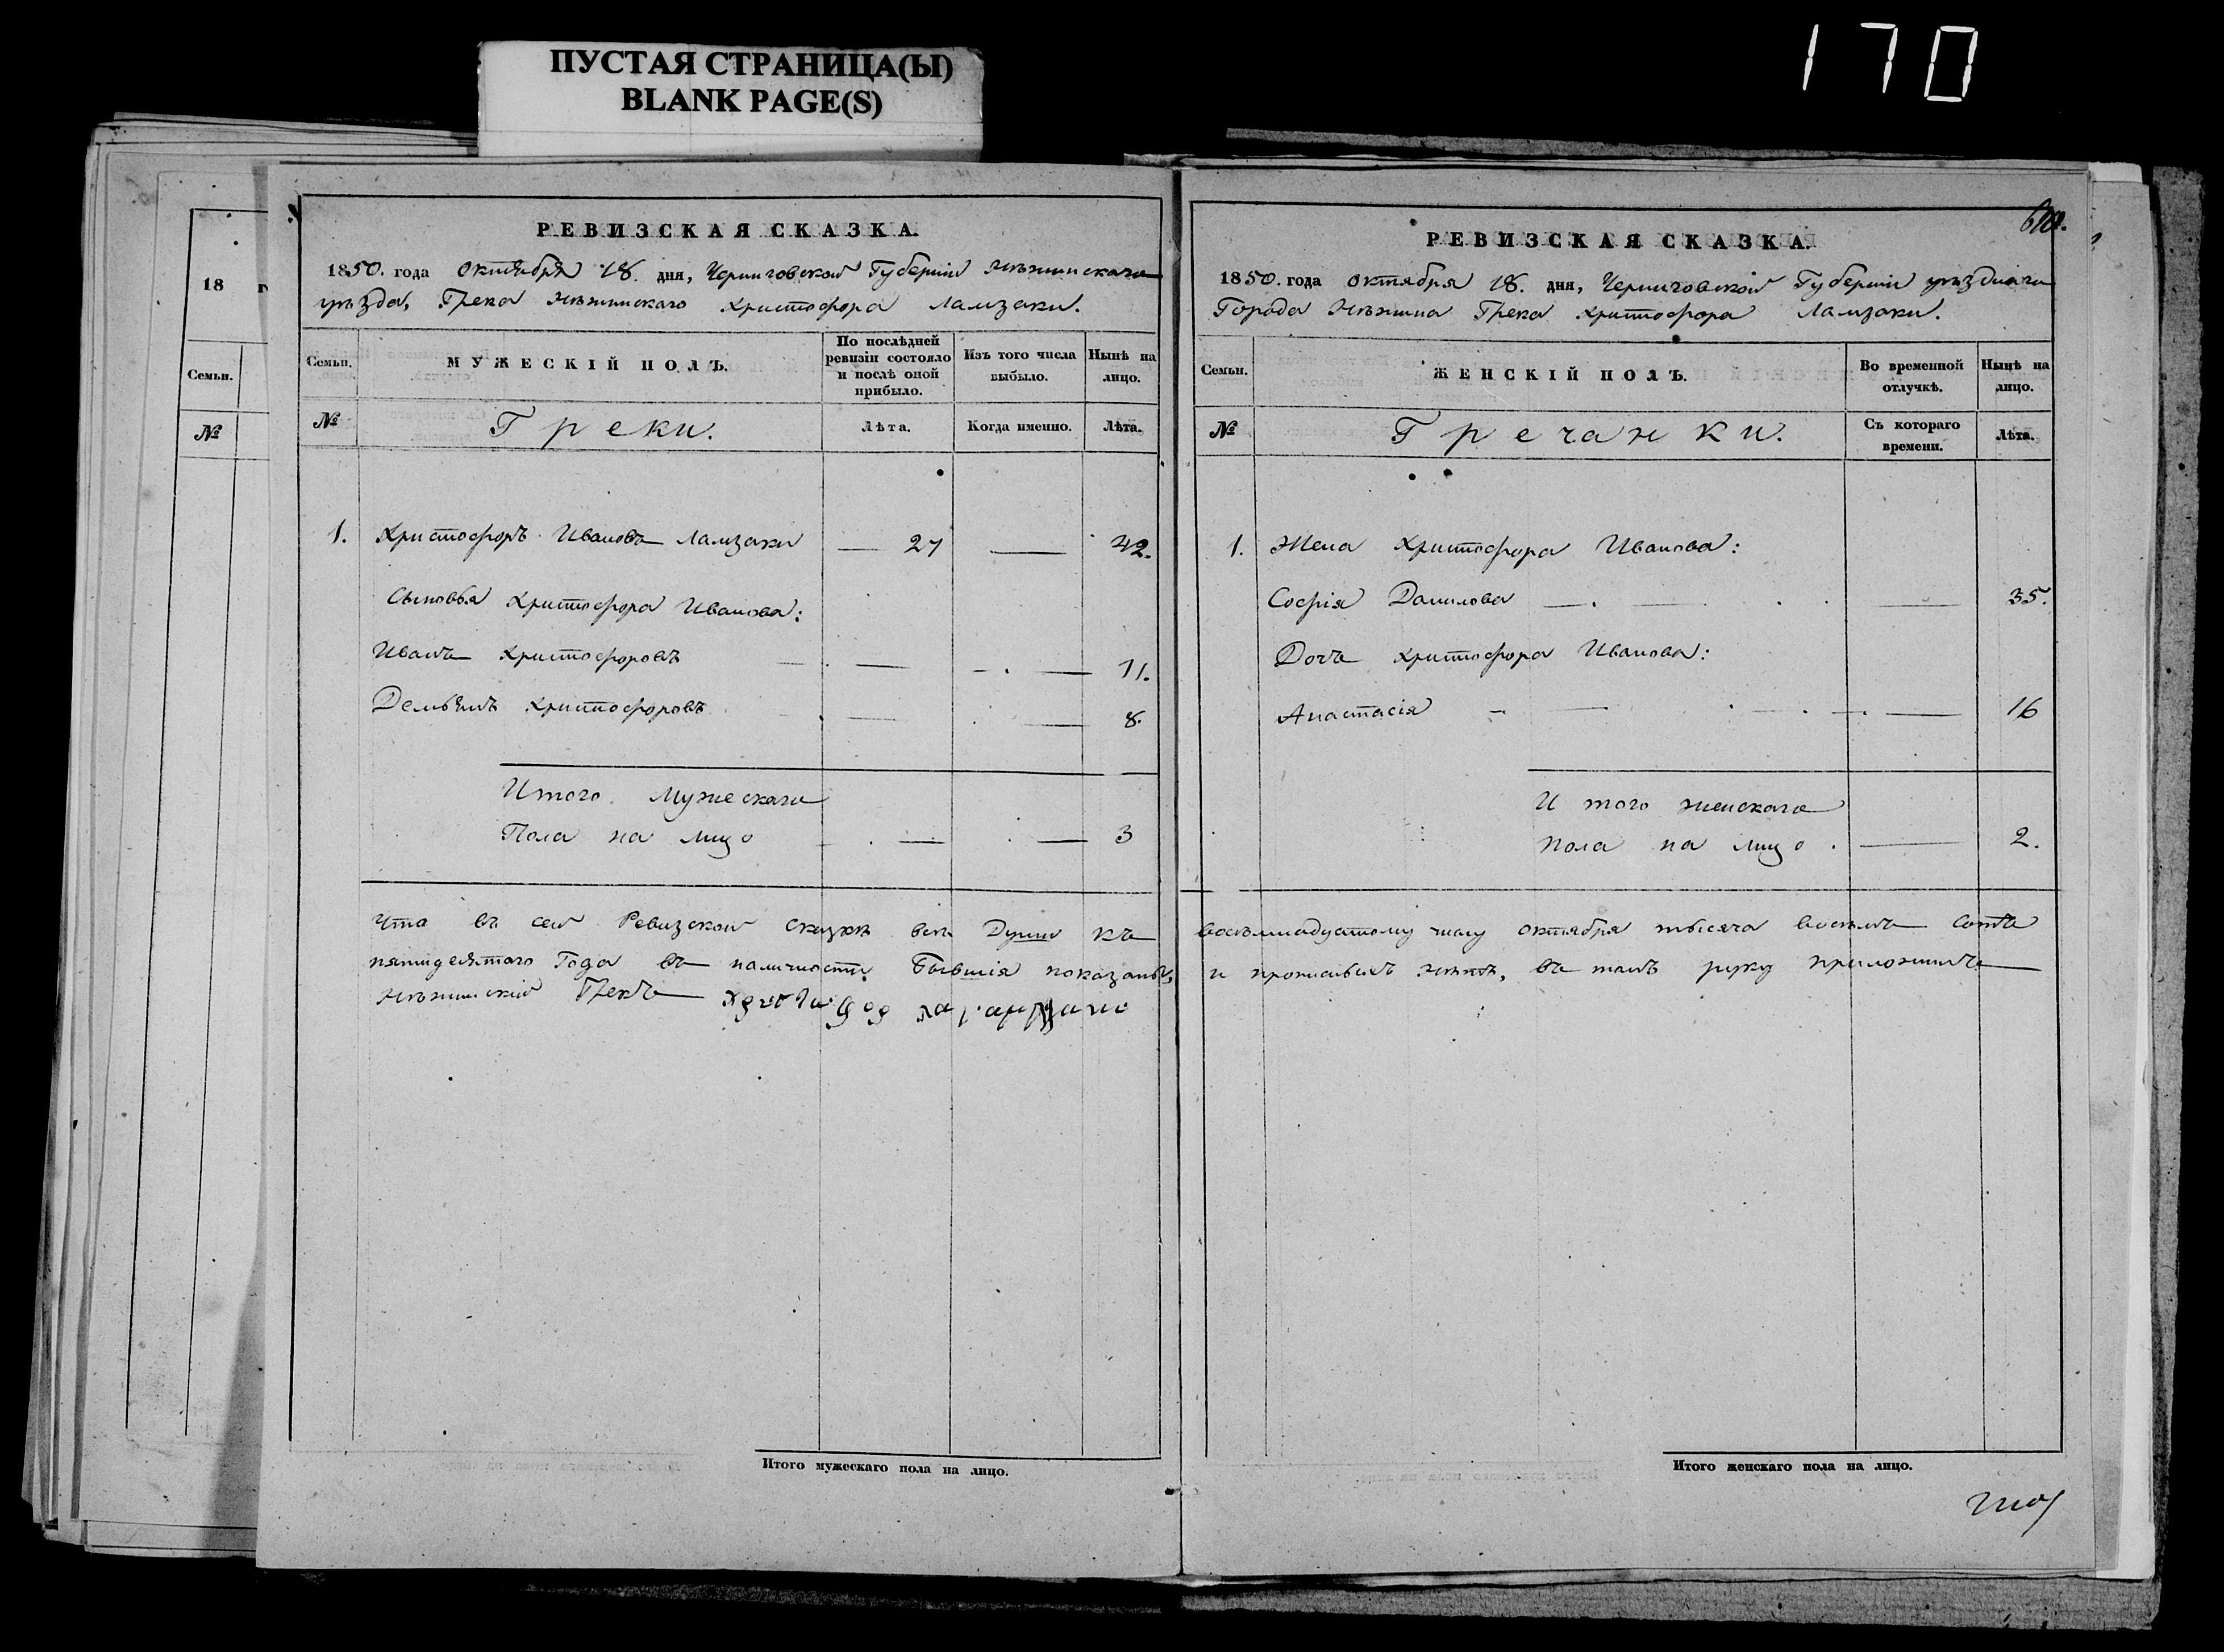 170
ПУСТАЯ СТРАНИЦА(Ы)
BLANK PAGE(S)
18 г
Семьи.
№
РЕВИЗСКАЯ СКАЗКА.
1850. года октября 18. дня, Черниговской Губерніи Нѣжинскаго
уѣзда, Грека Нѣжинскаго Христофора Ламзаки.
Семьи.
МУЖЕСКІЙ ПОЛЪ.
По послѣдней
ревизіи состояло
и послѣ оной
прибыло.
Изъ того числа
выбыло.
Нынѣ на
лицо.
№
Греки.
Лѣта.
Когда именно.
Лѣта.
1. Христофоръ Ивановъ Ламзаки — 27 — 42.
Сыновья Христофора Иванова:
Иванъ Христофоровъ — — 11.
Демьянъ Христофоровъ — — 8.
Итого Мужескаго
Пола на лицо — — 3
Что въ сей Ревизской сказкѣ всѣ Души къ
пятидесятого Года въ наличности бывшія показаны,
Нѣжинскій Грекъ
Итого мужескаго пола на лицо.
РЕВИЗСКАЯ СКАЗКА.
1850. года октября 18. дня, Черниговской Губерніи уѣзднаго
Города Нѣжина Грека Христофора Ламзаки.
Семьи.
ЖЕНСКІЙ ПОЛЪ.
Во временной
отлучкѣ.
Нынѣ на
лицо.
№
Гречанки.
Съ котораго
времени.
Лѣта.
1. Жена Христофора Иванова:
Софія Данилова — — 35.
Дочь Христофора Иванова:
Анастасія — — 16
Итого женскаго
пола на лицо . — 2.
восемнадцатому числу октября тысяча восемь сотъ
и прописныхъ нѣтъ, въ томъ руку приложилъ
Итого женскаго пола на лицо.